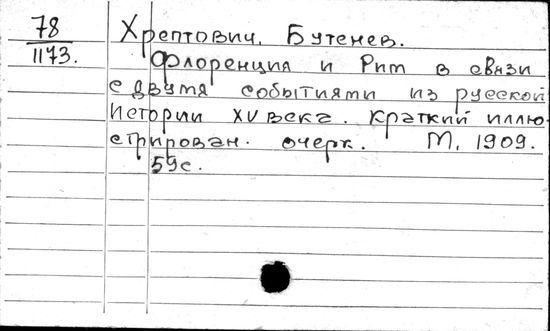 78 Хрептович, Бутенев.
1173. Флоренция и Рим в связи
с двумя событиями из русской
истории XV века. Краткий иллю-
стрирован. очерк. М, 1909.
59с.